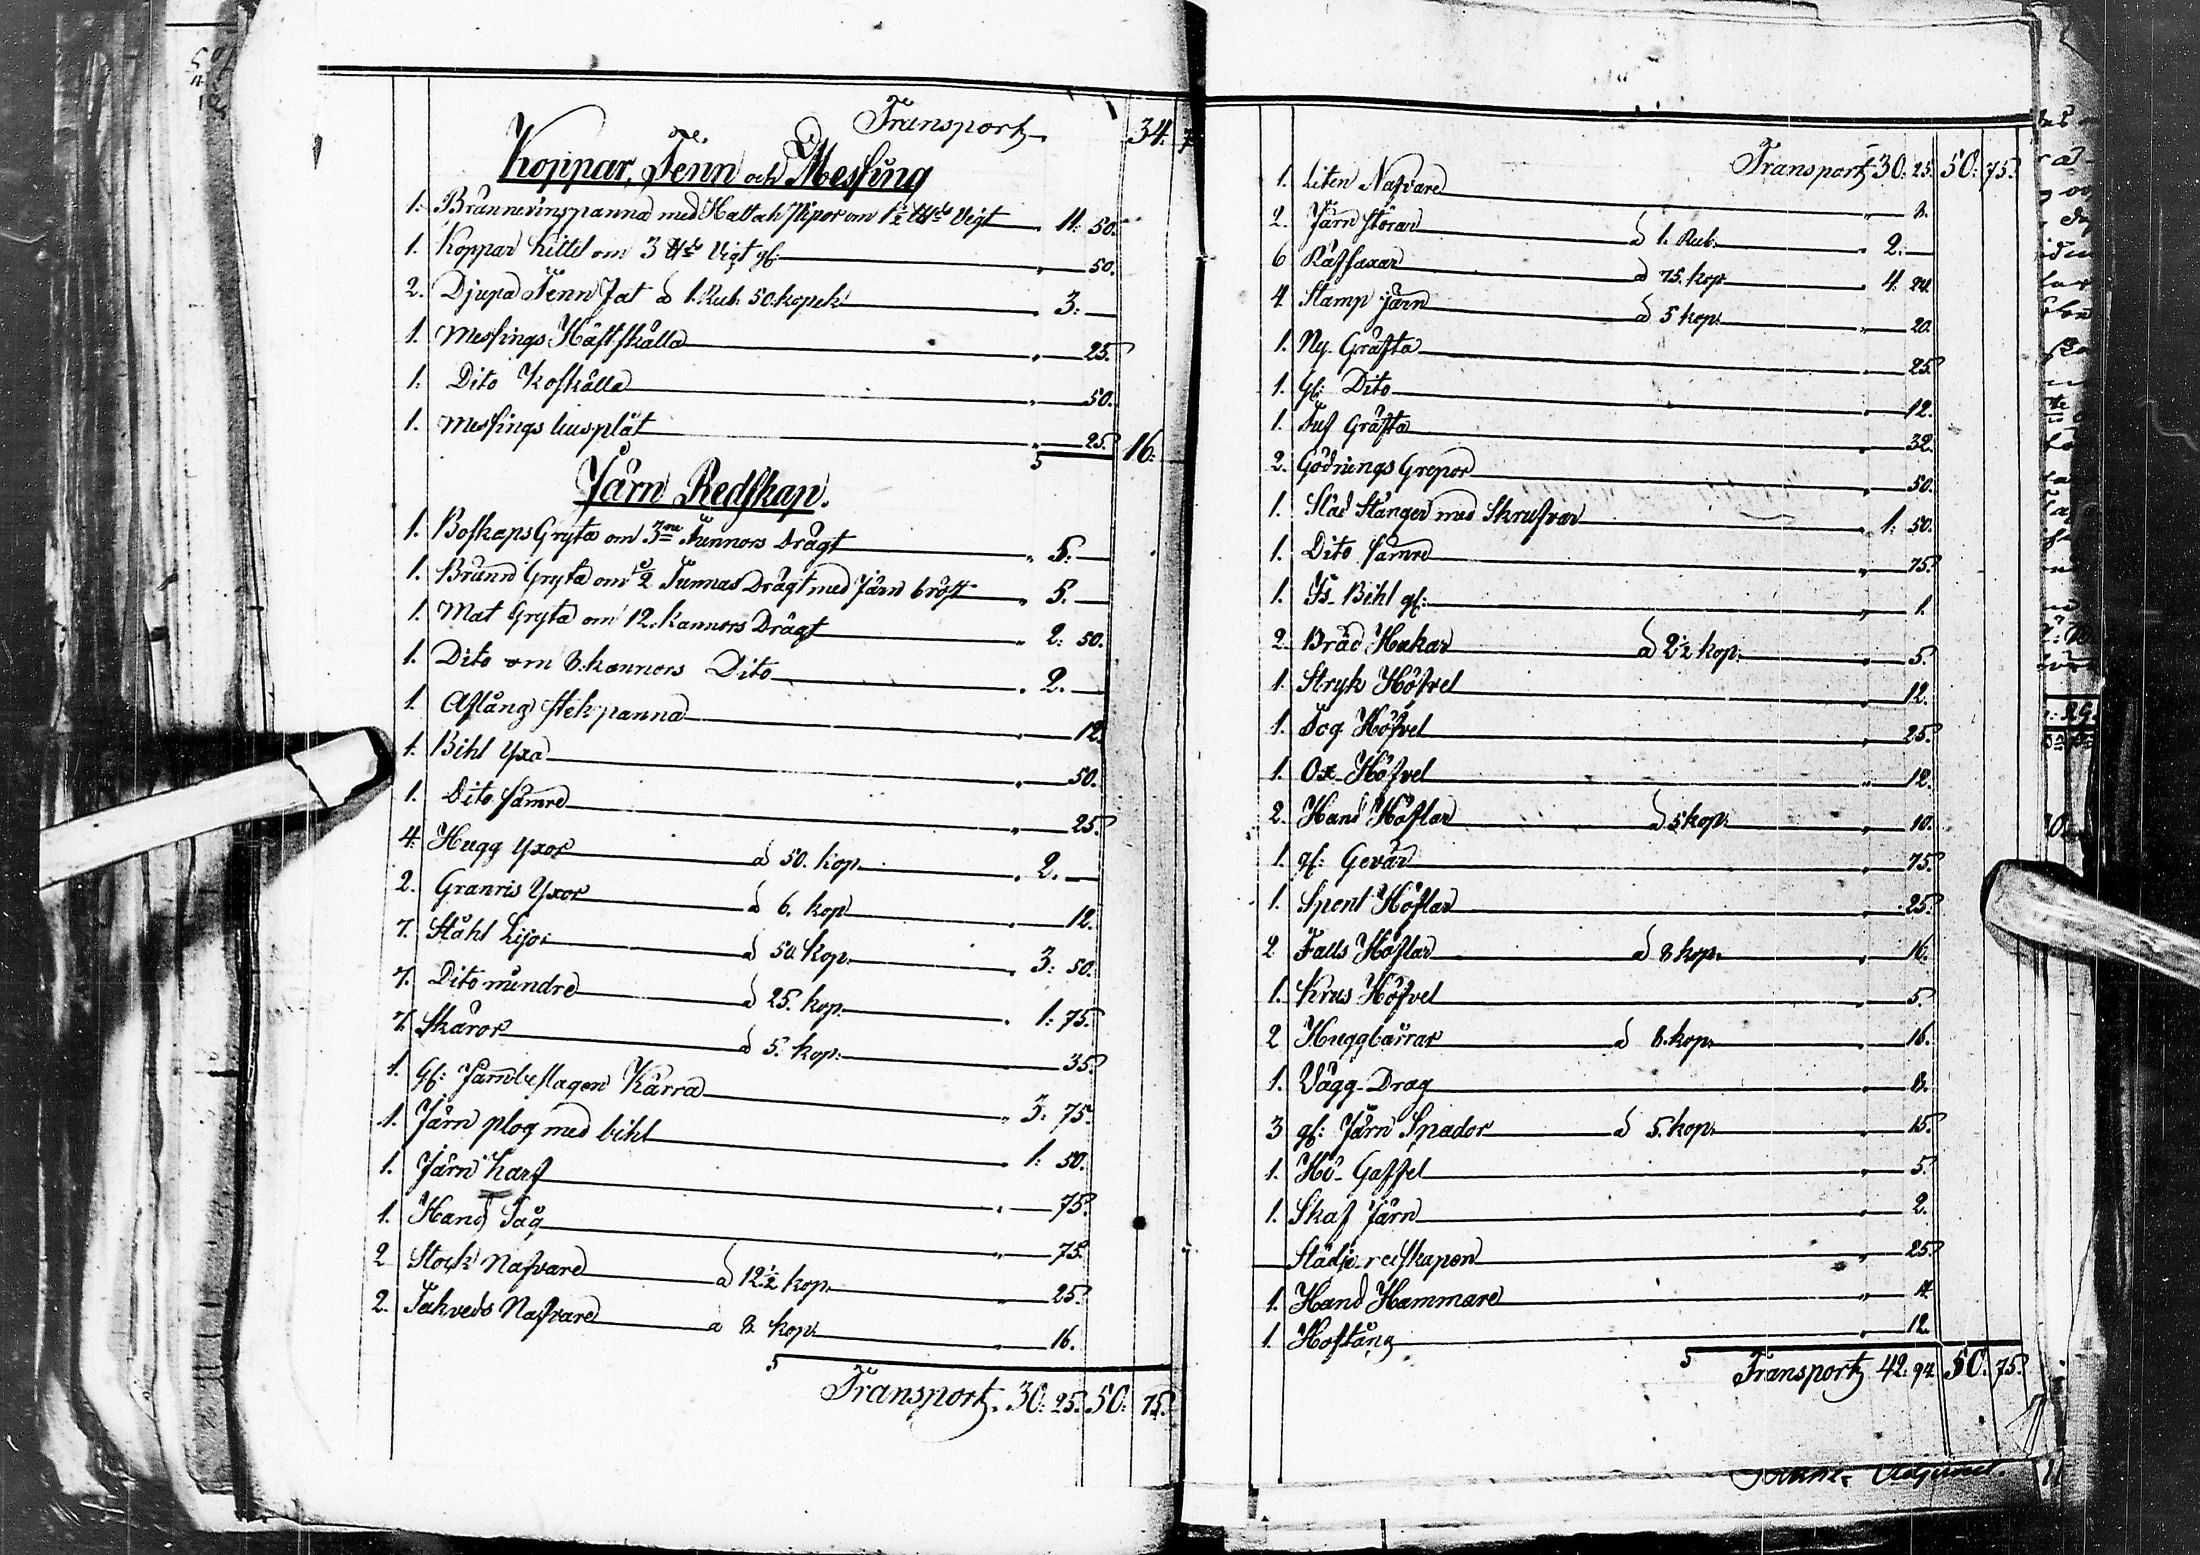 Transport 34:
Koppar, Tenn och Messing
1. Brännevinspanna med Hatt och Pipor om 1½ Vigt 11: 50.
1. Koppar kittel om 3 Vigt gl: 50.
2. Djupa Tenn fat a 1. Rub. 50. kopek 3:
1. Messings Hästskälla 25.
1. Dito Koskälla 50.
1. Messings liusplåt 25. 16:
Järn Redskap.
1. Boskaps Gryta om 3ne Tunnors Drägt 5.
1. Bränn Gryta om ½ Tunnas Drägt med Järn bröst 5.
1. Mat Gryta om 12. kannors Drägt 2: 50.
1. Dito om 8. kannors Dito 2.
1. Aflång stekpanna 12.
1. Bihl Yxa 50.
1. Dito sämre 25.
4. Hugg Yxor a 50. kop. 2.
2. Granris Yxor a 6. kop 12.
7. Ståhl Lijor a 50. kop. 3: 50.
7. Dito mindre a 25. kop. 1: 75.
7. Skäror a 5. kop. 35.
1. gl: Järnbeslagen Kärra 3: 75.
1. Järn plog med bihl 1: 50.
1. Järn harf 75.
1. Hand Såg 75.
2 Stock Nafvare a 12½ kop. 25.
2. Takveds Nafvare a 8 kop. 16.
Transport. 30: 25. 50: 75.
Transport 30: 25. 50: 75.
1. Liten Nafvare 3.
2. Järn störar a 1. Rub. 2.
6 Räfsaxar a 75. kop. 4:
4 Stamp järn a 5 kop. 20.
1. Ny Gräfta 25.
1. gl: Dito 12.
1. Tuf Gräfta 32.
2. Gödnings Grepor 50.
1. Släd Stänger med Skrufvar 1: 50.
1. Dito sämre 75.
1. Is-Bihl gl: 1.
2. Bräd Hakar a 2½ kop. 5.
1. Stryk Höfvel 12.
1. Fog Höfvel 25.
1. Ox-Höfvel 12.
2. Hand Höflar a 5 kop. 10.
1. gl: Gevär 75.
1. Spont Höflar 25.
2 Falls Höflar a 8 kop. 16.
1. Krus Höfvel 5.
2 Huggbärrar a 8. kop. 16.
1. Vägg-Drag 8.
3 gl: Järn Spador a 5. kop. 15.
1. Hö-Gaffel 5.
1. Skaf Järn 2.
Städje redskapen 25.
1. Hand Hammare 4.
1. Hoftång 12.
Transport 42: 94. 50: 75.